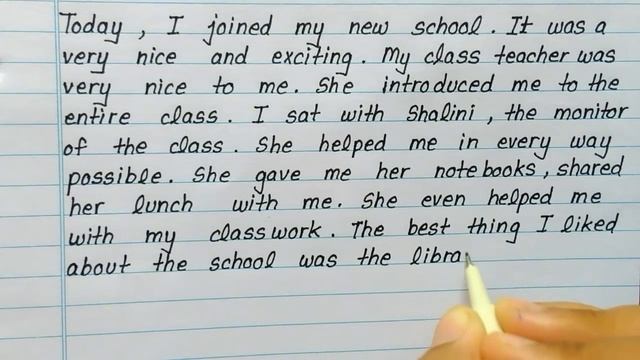 Today , I joined my new school . It was a
very nice and exciting . My class teacher was
very nice to me . She introduced me to the
entire class . I sat with Shalini , the monitor
of the class . She helped me in every way
possible . She gave me her notebooks , shared
her lunch with me . She even helped me
with my classwork . The best thing I liked
about the school was the libra